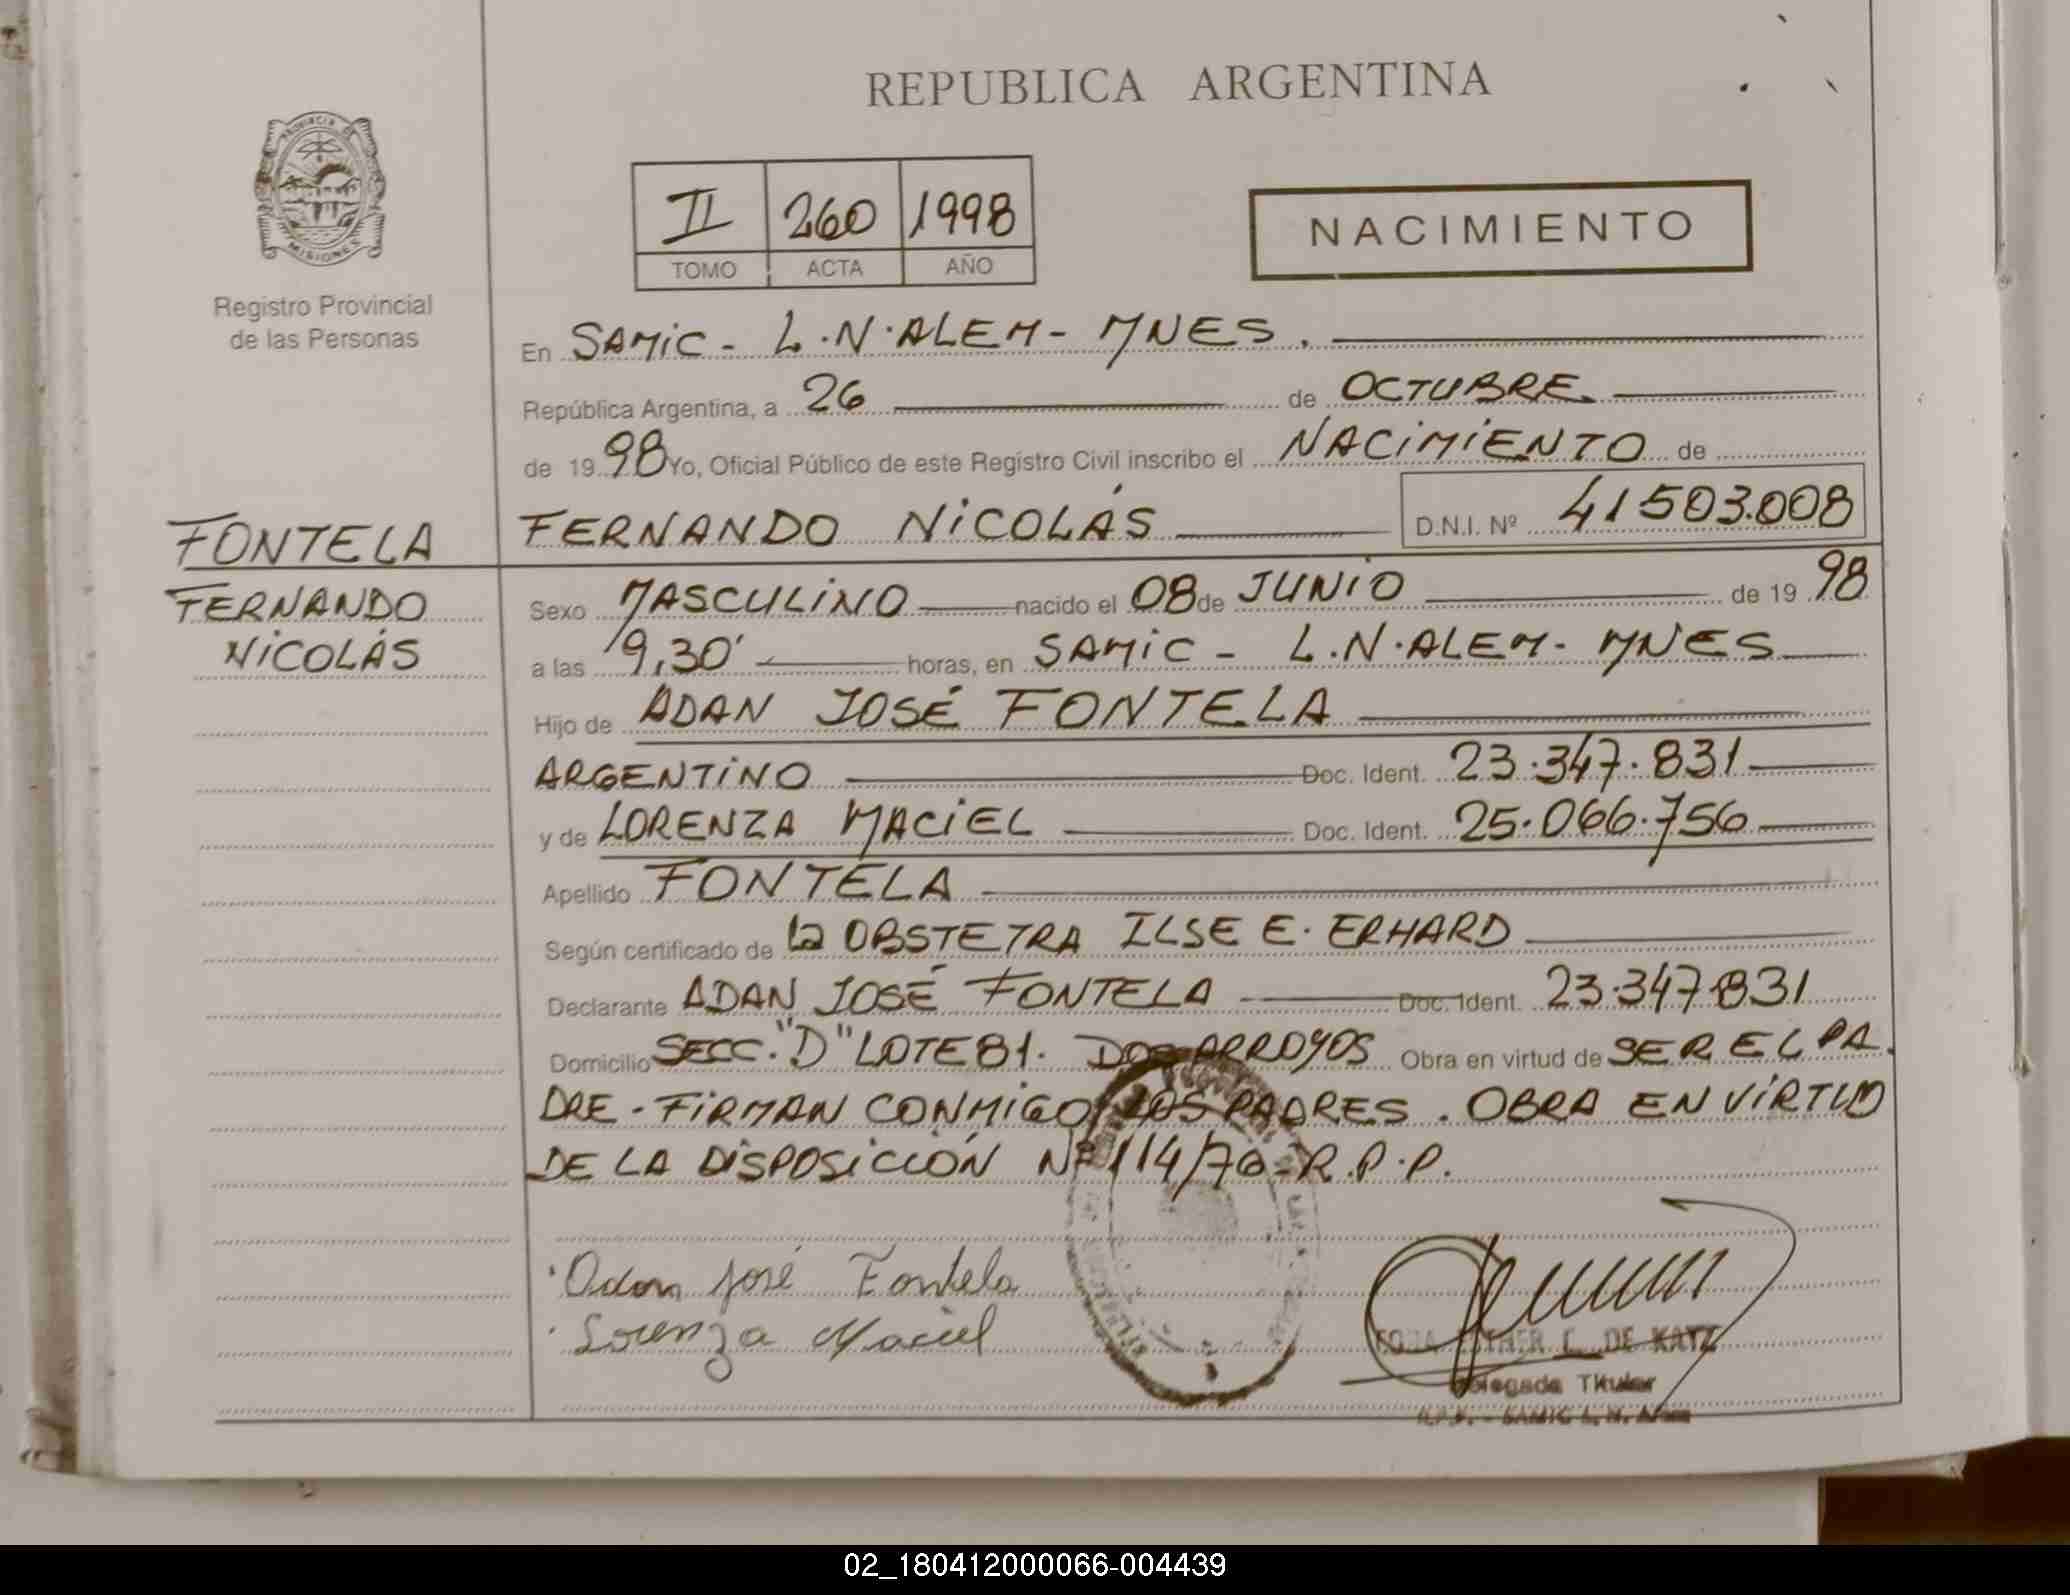 REPUBLICA ARGENTINA
PROVINCIA DE
MISIONES
Registro Provincial
de las Personas
II 260 1998
TOMO ACTA AÑO
NACIMIENTO
En SAMIC - L.N.ALEM - MNES.
República Argentina, a 26 de OCTUBRE
de 1998 Yo, Oficial Público de este Registro Civil inscribo el NACIMIENTO de
FONTELA
FERNANDO NICOLÁS D.N.I. Nº 41503.008
FERNANDO
NICOLÁS
Sexo MASCULINO nacido el 08 de JUNIO de 1998
a las 9,30' horas, en SAMIC - L.N.ALEM - MNES
Hijo de ADAN JOSÉ FONTELA
ARGENTINO Doc. Ident. 23.347.831
y de LORENZA MACIEL Doc. Ident. 25.066.756
Apellido FONTELA
Según certificado de la OBSTETRA ILSE E. ERHARD
Declarante ADAN JOSÉ FONTELA Doc. Ident. 23.347.831
Domicilio SECC. "D" LOTE 81. DOS ARROYOS Obra en virtud de SER EL PA.
DRE - FIRMAN CONMIGO LOS PADRES. OBRA EN VIRTUD
DE LA DISPOSICIÓN Nº 114/70 - R.P.P.
Adan José Fontela
Lorenza Maciel
DE KATZ
Delegada Titular
R.P.P. - SAMIC L. N. Alem
02_180412000066-004439